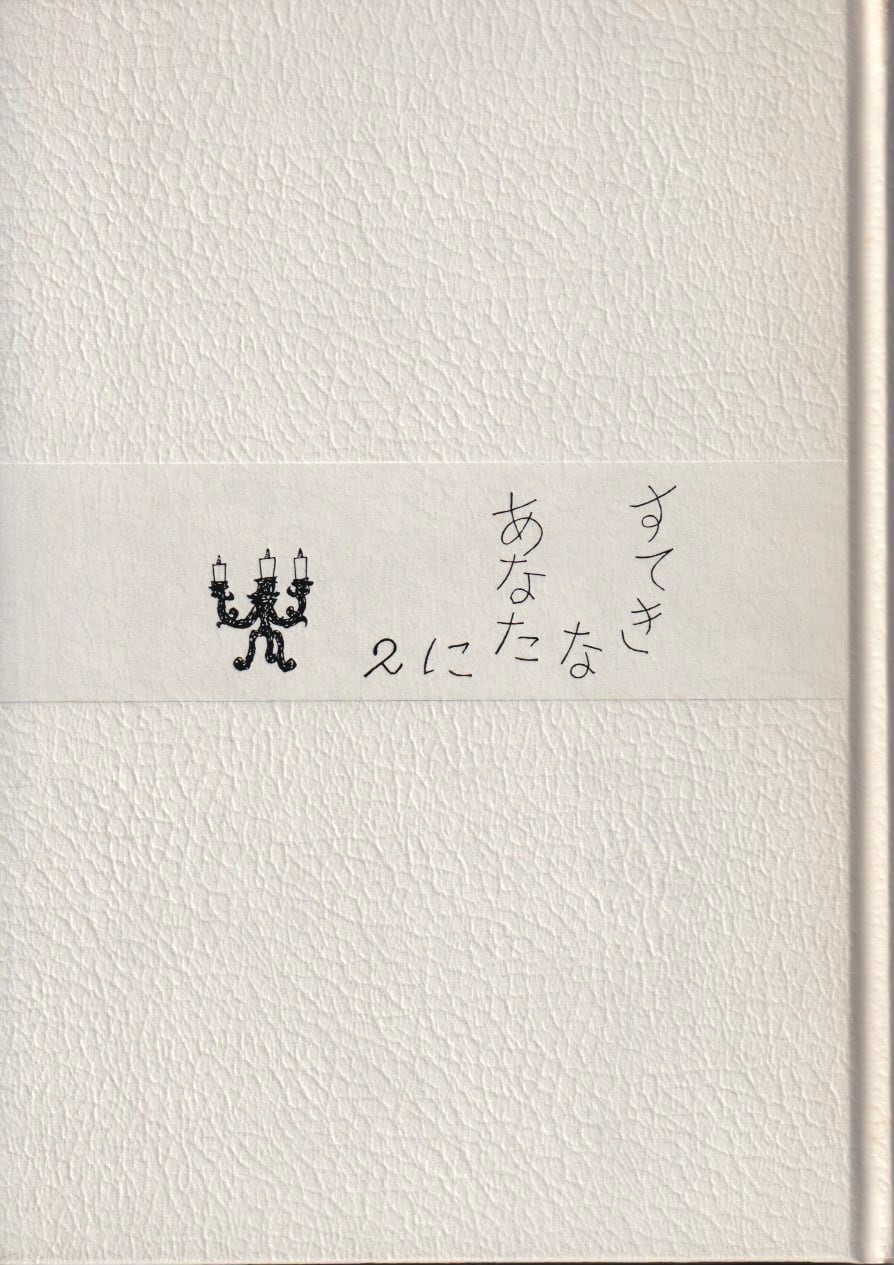 すてき
な
あなた
に
2